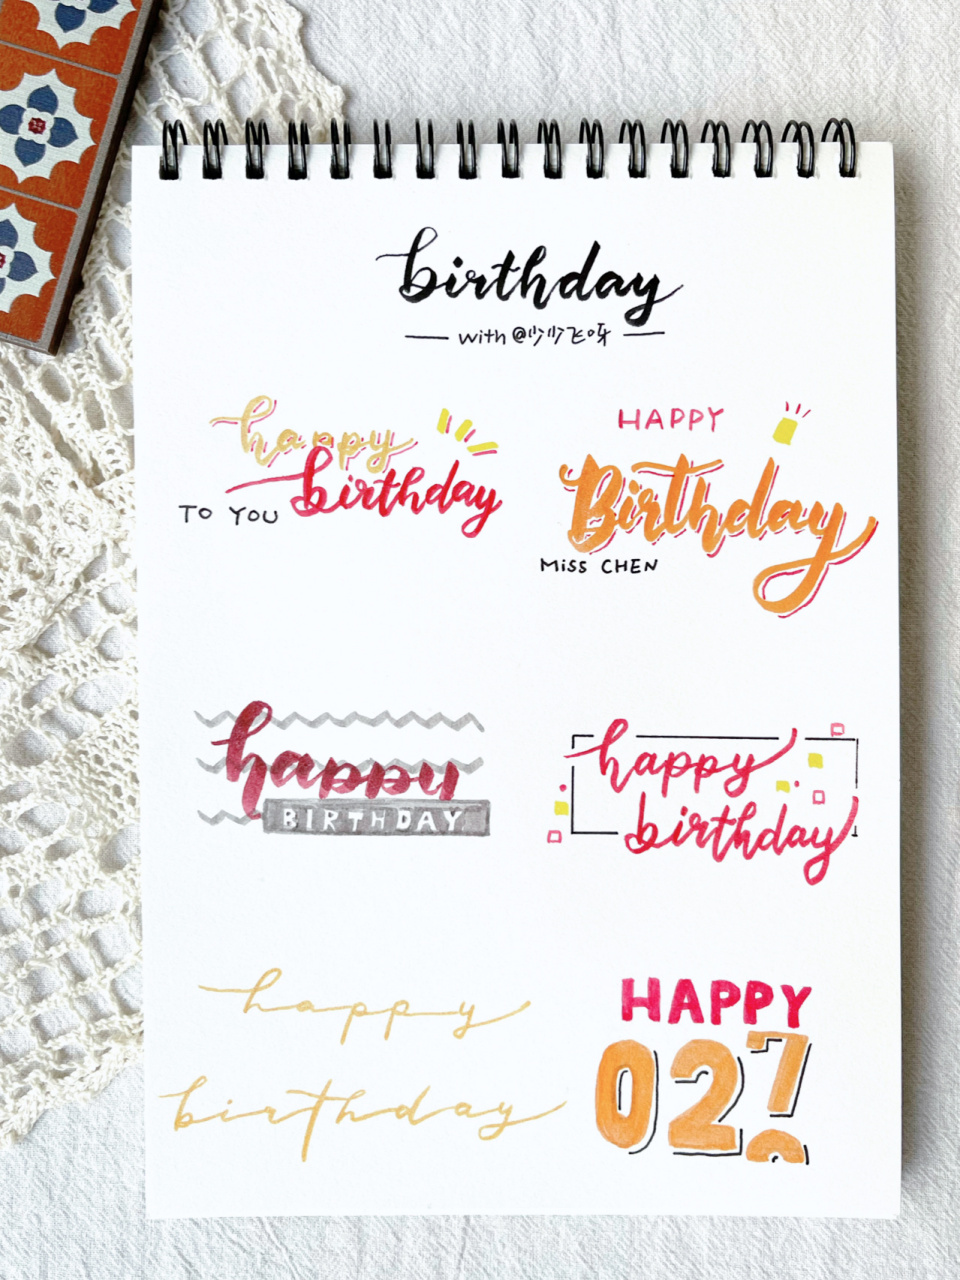 birthday
with @少少飞呀
happy
birthday
TO YOU
HAPPY
Birthday
MiSS CHEN
happy
BIRTHDAY
happy
birthday
happy
birthday
HAPPY
027